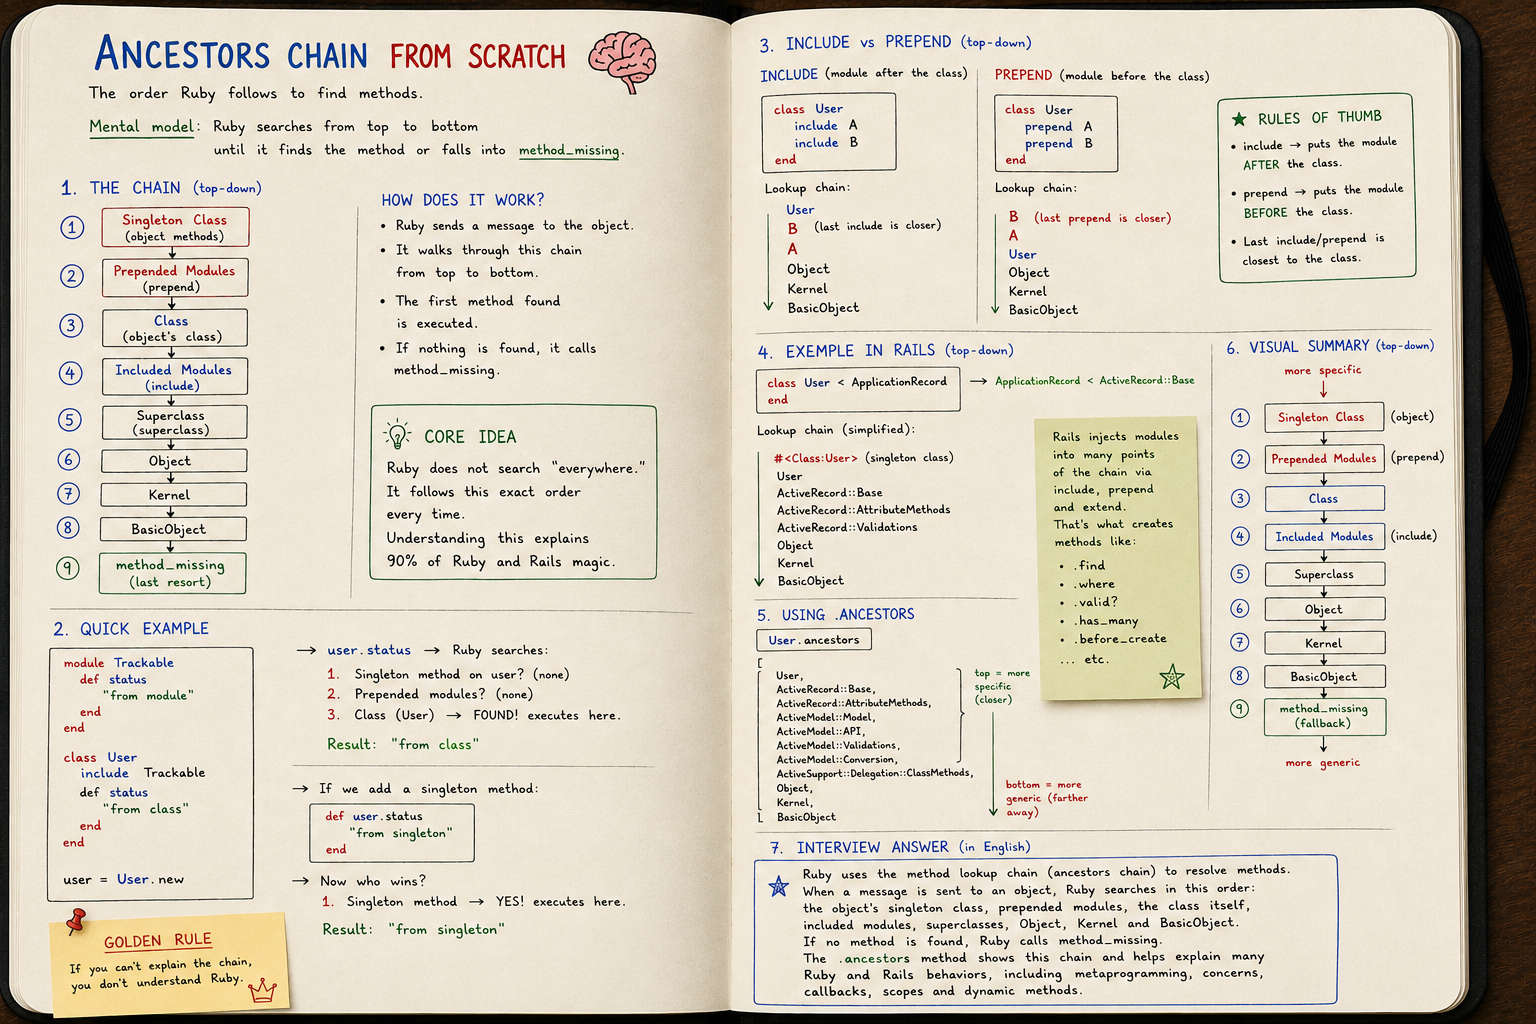 ANCESTORS CHAIN FROM SCRATCH
The order Ruby follows to find methods.
Mental model: Ruby searches from top to bottom
until it finds the method or falls into method_missing.
1. THE CHAIN (top-down)
1 Singleton Class
(object methods)
2 Prepended Modules
(prepend)
3 Class
(object's class)
4 Included Modules
(include)
5 Superclass
(superclass)
6 Object
7 Kernel
8 BasicObject
9 method_missing
(last resort)
HOW DOES IT WORK?
• Ruby sends a message to the object.
• It walks through this chain
from top to bottom.
• The first method found
is executed.
• If nothing is found, it calls
method_missing.
CORE IDEA
Ruby does not search "everywhere."
It follows this exact order
every time.
Understanding this explains
90% of Ruby and Rails magic.
2. QUICK EXAMPLE
module Trackable
def status
"from module"
end
end
class User
include Trackable
def status
"from class"
end
end
user = User.new
→ user.status → Ruby searches:
1. Singleton method on user? (none)
2. Prepended modules? (none)
3. Class (User) → FOUND! executes here.
Result: "from class"
→ If we add a singleton method:
def user.status
"from singleton"
end
→ Now who wins?
1. Singleton method → YES! executes here.
Result: "from singleton"
GOLDEN RULE
If you can't explain the chain,
you don't understand Ruby.
3. INCLUDE vs PREPEND (top-down)
INCLUDE (module after the class)
class User
include A
include B
end
Lookup chain:
User
B (last include is closer)
A
Object
Kernel
BasicObject
PREPEND (module before the class)
class User
prepend A
prepend B
end
Lookup chain:
B (last prepend is closer)
A
User
Object
Kernel
BasicObject
★ RULES OF THUMB
• include → puts the module
AFTER the class.
• prepend → puts the module
BEFORE the class.
• Last include/prepend is
closest to the class.
4. EXEMPLE IN RAILS (top-down)
class User < ApplicationRecord
end
→ ApplicationRecord < ActiveRecord::Base
Lookup chain (simplified):
#<Class:User> (singleton class)
User
ActiveRecord::Base
ActiveRecord::AttributeMethods
ActiveRecord::Validations
Object
Kernel
BasicObject
Rails injects modules
into many points
of the chain via
include, prepend
and extend.
That's what creates
methods like:
• .find
• .where
• .valid?
• .has_many
• .before_create
... etc.
5. USING .ANCESTORS
User.ancestors
[
User,
ActiveRecord::Base,
ActiveRecord::AttributeMethods,
ActiveModel::Model,
ActiveModel::API,
ActiveModel::Validations,
ActiveModel::Conversion,
ActiveSupport::Delegation::ClassMethods,
Object,
Kernel,
BasicObject
top = more
specific
(closer)
bottom = more
generic (farther
away)
6. VISUAL SUMMARY (top-down)
more specific
1 Singleton Class (object)
2 Prepended Modules (prepend)
3 Class
4 Included Modules (include)
5 Superclass
6 Object
7 Kernel
8 BasicObject
9 method_missing
(fallback)
more generic
7. INTERVIEW ANSWER (in English)
Ruby uses the method lookup chain (ancestors chain) to resolve methods.
When a message is sent to an object, Ruby searches in this order:
the object's singleton class, prepended modules, the class itself,
included modules, superclasses, Object, Kernel and BasicObject.
If no method is found, Ruby calls method_missing.
The .ancestors method shows this chain and helps explain many
Ruby and Rails behaviors, including metaprogramming, concerns,
callbacks, scopes and dynamic methods.